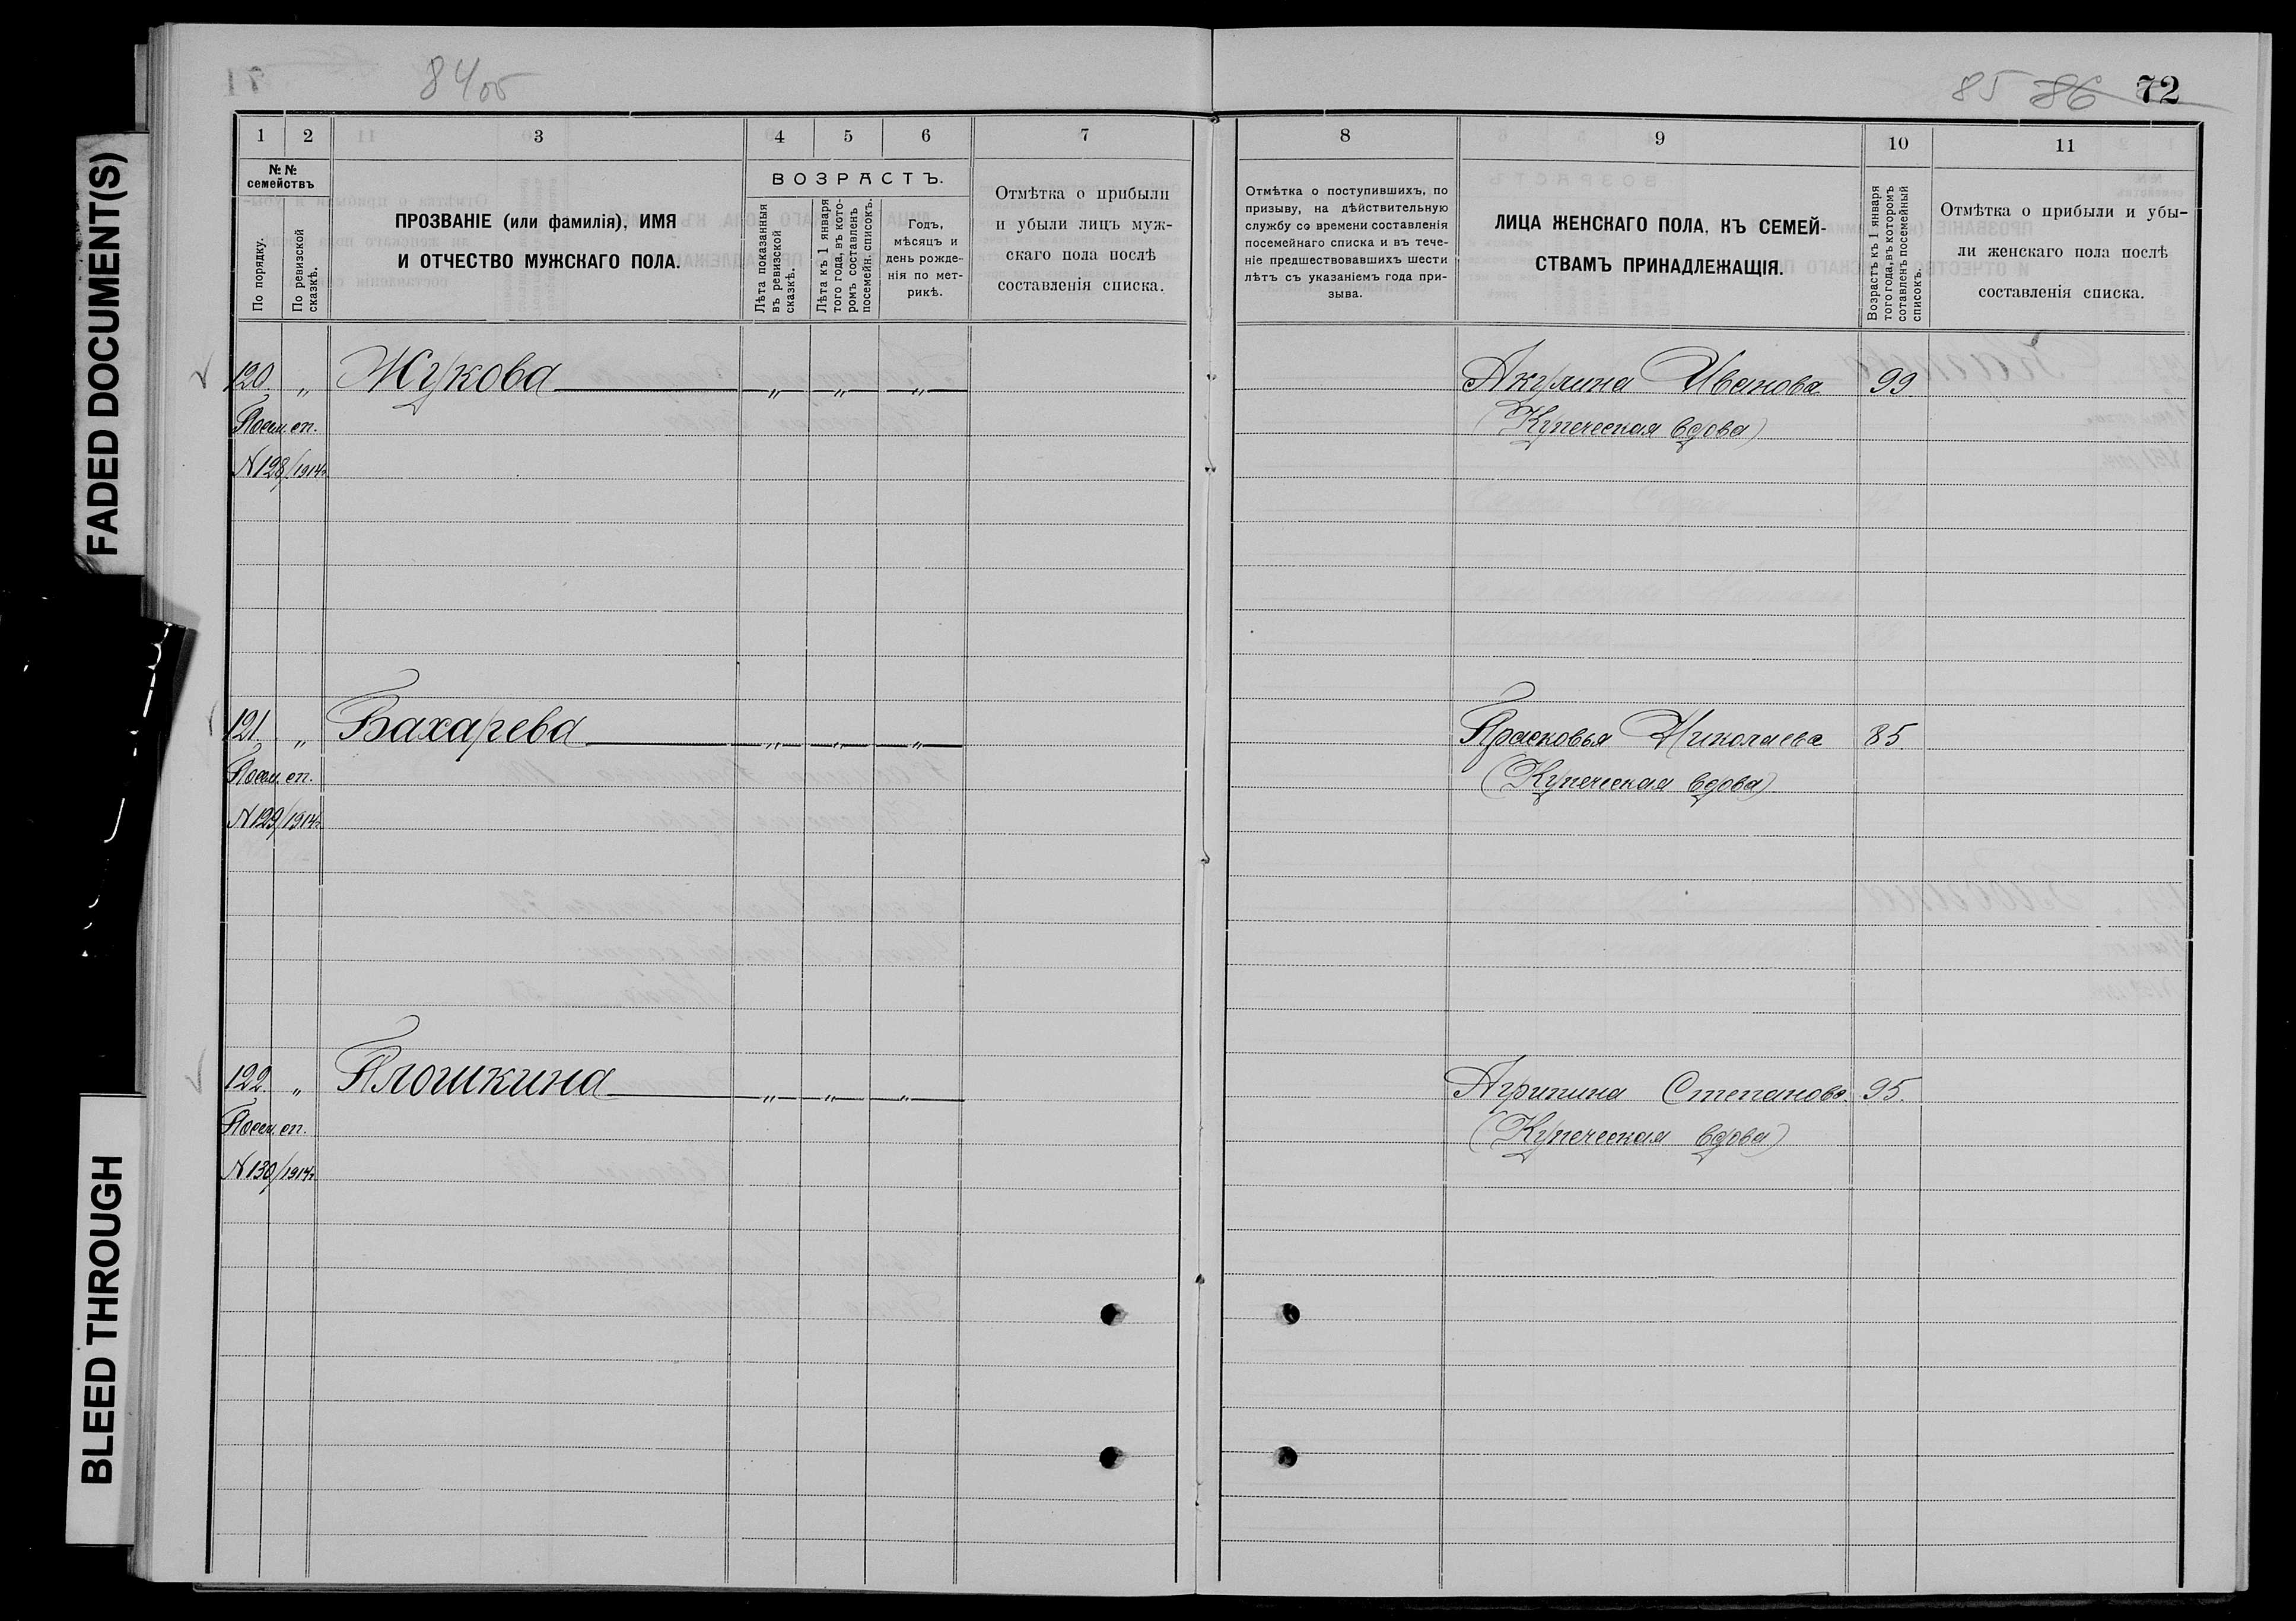 FADED DOCUMENT(S)
BLEED THROUGH
84об
85 86 72
1 2 3 4 5 6 7
№ № семействъ
По порядку.
По ревизской сказкѣ.
ПРОЗВАНІЕ (или фамилія), ИМЯ
И ОТЧЕСТВО МУЖСКАГО ПОЛА.
ВОЗРАСТЪ.
Лѣта показанныя въ ревизской сказкѣ.
Лѣта къ 1 января того года, въ кото-ромъ составленъ посемейн. списокъ.
Годъ,
мѣсяцъ и
день рожде-
нія по мет-
рикѣ.
Отмѣтка о прибыли
и убыли лицъ муж-
скаго пола послѣ
составленія списка.
8 9 10 11
Отмѣтка о поступившихъ, по
призыву, на дѣйствительную
службу со времени составленія
посемейнаго списка и въ тече-
ніе предшествовавшихъ шести
лѣтъ съ указаніемъ года при-
зыва.
ЛИЦА ЖЕНСКАГО ПОЛА, КЪ СЕМЕЙ-
СТВАМЪ ПРИНАДЛЕЖАЩІЯ.
Возрастъ къ 1 января того года, въ которомъ составленъ посемейный списокъ.
Отмѣтка о прибыли и убы-
ли женскаго пола послѣ
составленія списка.
120. „ Жукова „ „ „ Акулина Иванова 99
Посем. сп. (Купеческая вдова)
N 128/1914г.
121. „ Бахарева „ „ „ Прасковья Николаева 85
Посем. сп. (Купеческая вдова)
N 129/1914г.
122. „ Плошкина „ „ „ Агрипина Степанова. 95.
Посем. сп. (Купеческая вдова)
N 130/1914г.